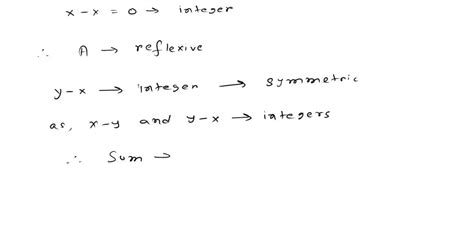 x-x = 0 → integer
∴ A → reflexive
y-x → integer → symmetric
as, x-y and y-x → integers
∴ Sum →